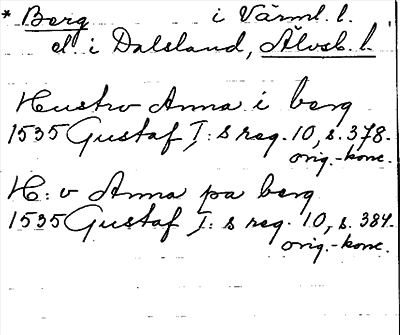 * Berg i Värml. l.
el. i Dalsland, Älvsb. l.
Hustrv Anna i berg
1535 Gustaf I: s reg. 10, s. 378.
orig.-konc.
H: v Anna pa berg
1535 Gustaf I: s reg. 10, s. 384.
orig.-konc.